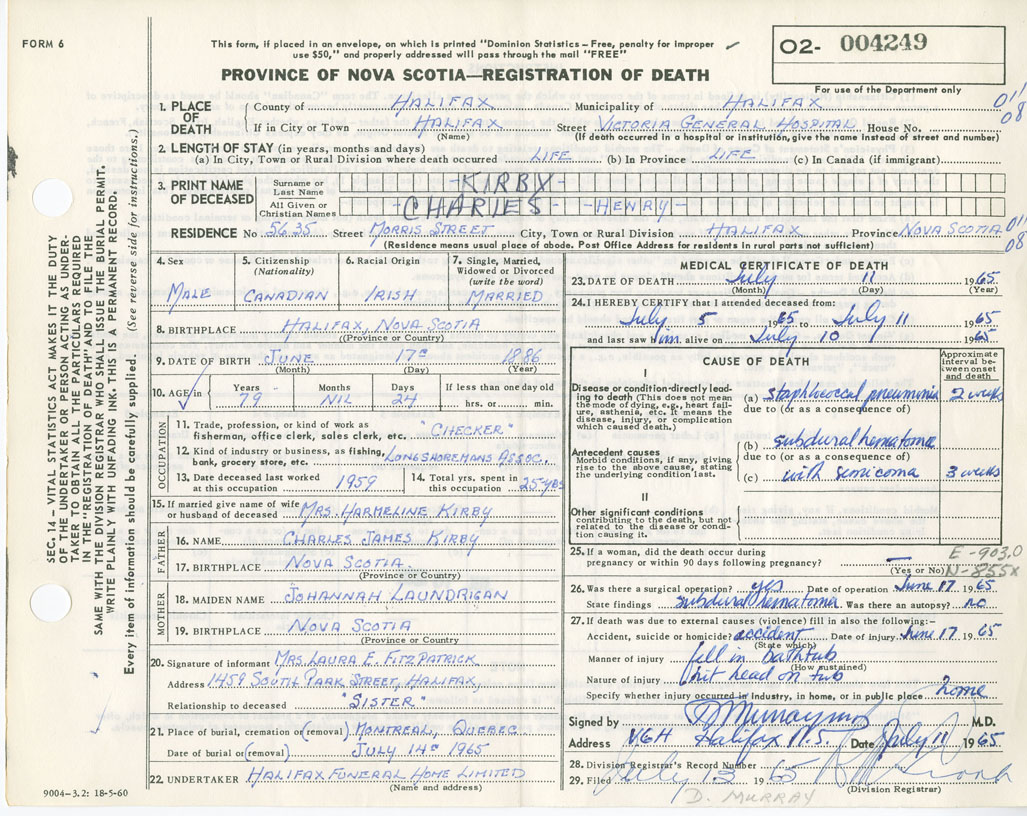 FORM 6
This form, if placed in an envelope, on which is printed "Dominion Statistics – Free, penalty for improper
use $50," and properly addressed will pass through the mail "FREE"
O2- 004249
PROVINCE OF NOVA SCOTIA—REGISTRATION OF DEATH
For use of the Department only
SEC. 14 – VITAL STATISTICS ACT MAKES IT THE DUTY
OF THE UNDERTAKER OR PERSON ACTING AS UNDER-
TAKER TO OBTAIN ALL THE PARTICULARS REQUIRED
IN THE "REGISTRATION OF DEATH" AND TO FILE THE
SAME WITH THE DIVISION REGISTRAR WHO SHALL ISSUE THE BURIAL PERMIT.
WRITE PLAINLY WITH UNFADING INK. THIS IS A PERMANENT RECORD.
Every item of information should be carefully supplied. (See reverse side for instructions.)
1. PLACE OF DEATH
County of HALIFAX Municipality of HALIFAX
011
08
If in City or Town HALIFAX Street VICTORIA GENERAL HOSPITAL House No.
(Name) (If death occurred in a hospital or institution, give the name instead of street and number)
2. LENGTH OF STAY (in years, months and days)
(a) In City, Town or Rural Division where death occurred LIFE (b) In Province LIFE (c) In Canada (if immigrant)
3. PRINT NAME OF DECEASED
Surname or Last Name KIRBY
All Given or Christian Names CHARLES - HENRY
RESIDENCE No 5635 Street MORRIS STREET City, Town or Rural Division HALIFAX Province NOVA SCOTIA
011
08
(Residence means usual place of abode. Post Office Address for residents in rural parts not sufficient)
4. Sex
MALE
5. Citizenship (Nationality)
CANADIAN
6. Racial Origin
IRISH
7. Single, Married, Widowed or Divorced (write the word)
MARRIED
8. BIRTHPLACE HALIFAX, NOVA SCOTIA
(Province or Country)
9. DATE OF BIRTH JUNE 17th 1886
(Month) (Day) (Year)
10. AGE in Years 79 Months NIL Days 24 If less than one day old hrs. or min.
OCCUPATION
11. Trade, profession, or kind of work as
fisherman, office clerk, sales clerk, etc. "CHECKER"
12. Kind of industry or business, as fishing,
bank, grocery store, etc. LONGSHOREMANS ASSOC.
13. Date deceased last worked
at this occupation 1959
14. Total yrs. spent in
this occupation 25 yrs
15. If married give name of wife
or husband of deceased MRS. HARMELINE KIRBY
FATHER
16. NAME CHARLES JAMES KIRBY
17. BIRTHPLACE NOVA SCOTIA
(Province or Country)
MOTHER
18. MAIDEN NAME JOHANNAH LAUNDRIGAN
19. BIRTHPLACE NOVA SCOTIA
(Province or Country
20. Signature of informant MRS. LAURA E. FITZPATRICK
Address 1459 SOUTH PARK STREET, HALIFAX,
Relationship to deceased "SISTER"
21. Place of burial, cremation or (removal) MONTREAL, QUEBEC
Date of burial or (removal) JULY 14th 1965
22. UNDERTAKER HALIFAX FUNERAL HOME LIMITED
(Name and address)
9004–3.2: 18-5-60
MEDICAL CERTIFICATE OF DEATH
23. DATE OF DEATH July 11 1965
(Month) (Day) (Year)
24. I HEREBY CERTIFY that I attended deceased from:
July 5 1965 to July 11 1965
and last saw him alive on July 10 1965
CAUSE OF DEATH
Approximate interval between onset and death
I
Disease or condition directly lead-
ing to death (This does not mean
the mode of dying, e.g., heart fail-
ure, asthenia, etc. It means the
disease, injury, or complication
which caused death.)
(a) staphlococcal pneumonia 2 weeks
due to (or as a consequence of)
(b) subdural hematoma
due to (or as a consequence of)
(c) with semicoma 3 weeks
Antecedent causes
Morbid condition, if any, giving
rise to the above cause, stating
the underlying condition last.
II
Other significant conditions
contributing to the death, but not
related to the disease or condi-
tion causing it.
25. If a woman, did the death occur during
pregnancy or within 90 days following pregnancy? —
(Yes or No)
E-903.0
N-855x
26. Was there a surgical operation? yes Date of operation June 17 1965
State findings subdural hematoma. Was there an autopsy? no
27. If death was due to external causes (violence) fill in also the following:–
Accident, suicide or homicide? accident Date of injury June 17 1965
(State which)
Manner of injury fell in bathtub
(How sustained)
Nature of injury hit head on tub
Specify whether injury occurred in industry, in home, or in public place home
Signed by M.D.
Address VGH Halifax N.S. Date July 11 1965
28. Division Registrar's Record Number
29. Filed July 13 1965
(Division Registrar)
D. MURRAY